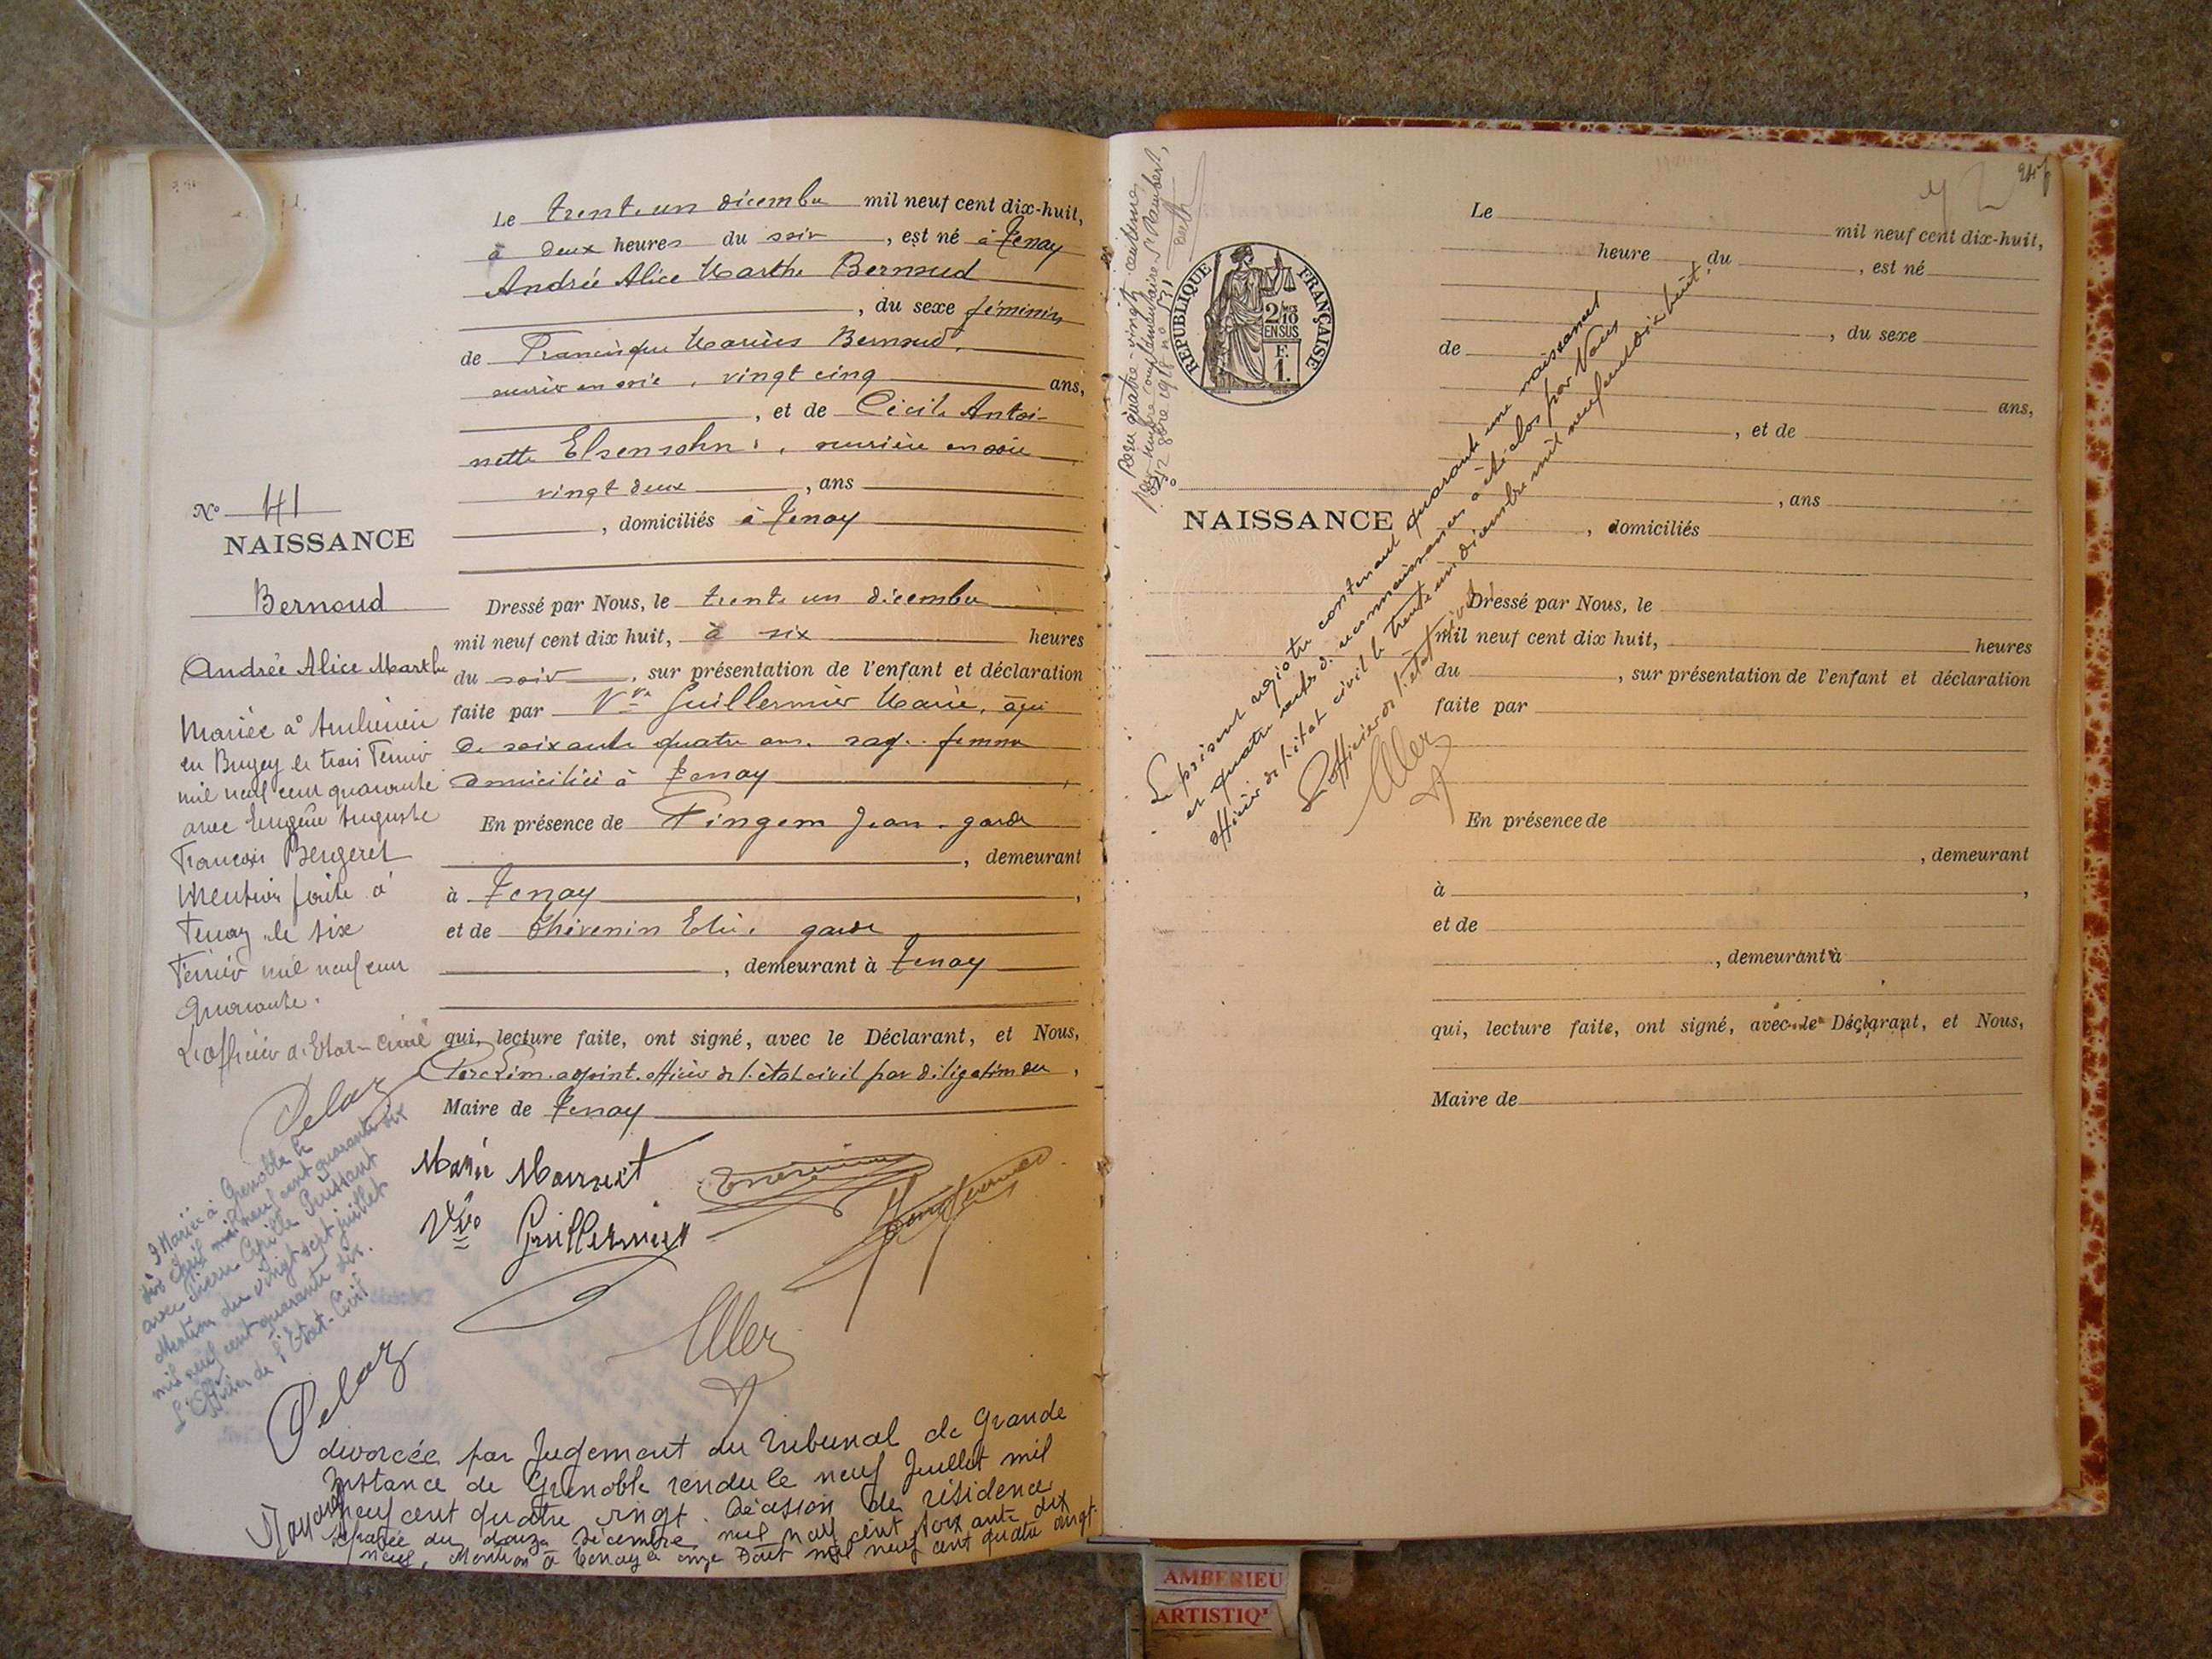 Le trente un décembre mil neuf cent dix-huit,
à deux heures du soir, est né à Tenay
Andrée Alice Marthe Bernoud
, du sexe féminin
de Francisque Marius Bernoud,
ouvrier en soie, vingt cinq ans,
, et de Cécile Antoi-
nette Elsensohn, ouvrière en soie
vingt deux, ans
, domiciliés à Tenay
N° 41
NAISSANCE
Bernoud
Andrée Alice Marthe
Dressé par Nous, le trente un décembre
mil neuf cent dix huit, à six heures
du soir, sur présentation de l'enfant et déclaration
faite par Vve Guillermier Marie, âgée
de soixante quatre ans, sage-femme
domiciliée à Tenay,
En présence de Fingem Jean, garde
, demeurant
à Tenay,
et de Thévenin Elie, garde
, demeurant à Tenay
qui, lecture faite, ont signé, avec le Déclarant, et Nous,
adjoint, officier de l'état civil par délégation du,
Maire de Tenay
Mariée à Ambérieu
en Bugey le trois Février
mil neuf cent quarante
avec Eugène Auguste
François Bergeret
Mention faite à
Tenay le six
Février mil neuf cent
quarante.
L'officier d'Etat-Civil
Pelaz
Mariée à Grenoble le
dix mil neuf cent quarante six
avec Pierre Cyrille Puissant
Mention du vingt sept juillet
mil neuf cent quarante six.
L'Officier de l'Etat-Civil
Pelaz
Marie
Vve Guillermier
divorcée par Jugement du Tribunal de Grande
Instance de Grenoble rendu le neuf Juillet mil
neuf cent quatre vingt. Décision de résidence
séparée du douze Décembre mil neuf cent soixante dix
neuf, Mention à Tenay le onze Août mil neuf cent quatre vingt.
Pour quatre-vingts centimes
RÉPUBLIQUE FRANÇAISE
2/10
EN SUS
F.
1.
NAISSANCE
Le présent registre contenant quarante une naissances
et quatre actes de reconnaissances a été clos par Nous
officier de l'état civil le trente un décembre mil neuf cent dix huit.
L'officier de l'état civil
Le mil neuf cent dix-huit,
heure du , est né
, du sexe
de
ans,
, et de
, ans
, domiciliés
Dressé par Nous, le
mil neuf cent dix huit, heures
du , sur présentation de l'enfant et déclaration
faite par
En présence de
, demeurant
à ,
et de
, demeurant à
qui, lecture faite, ont signé, avec le Déclarant, et Nous,
Maire de
AMBERIEU
ARTISTIQ